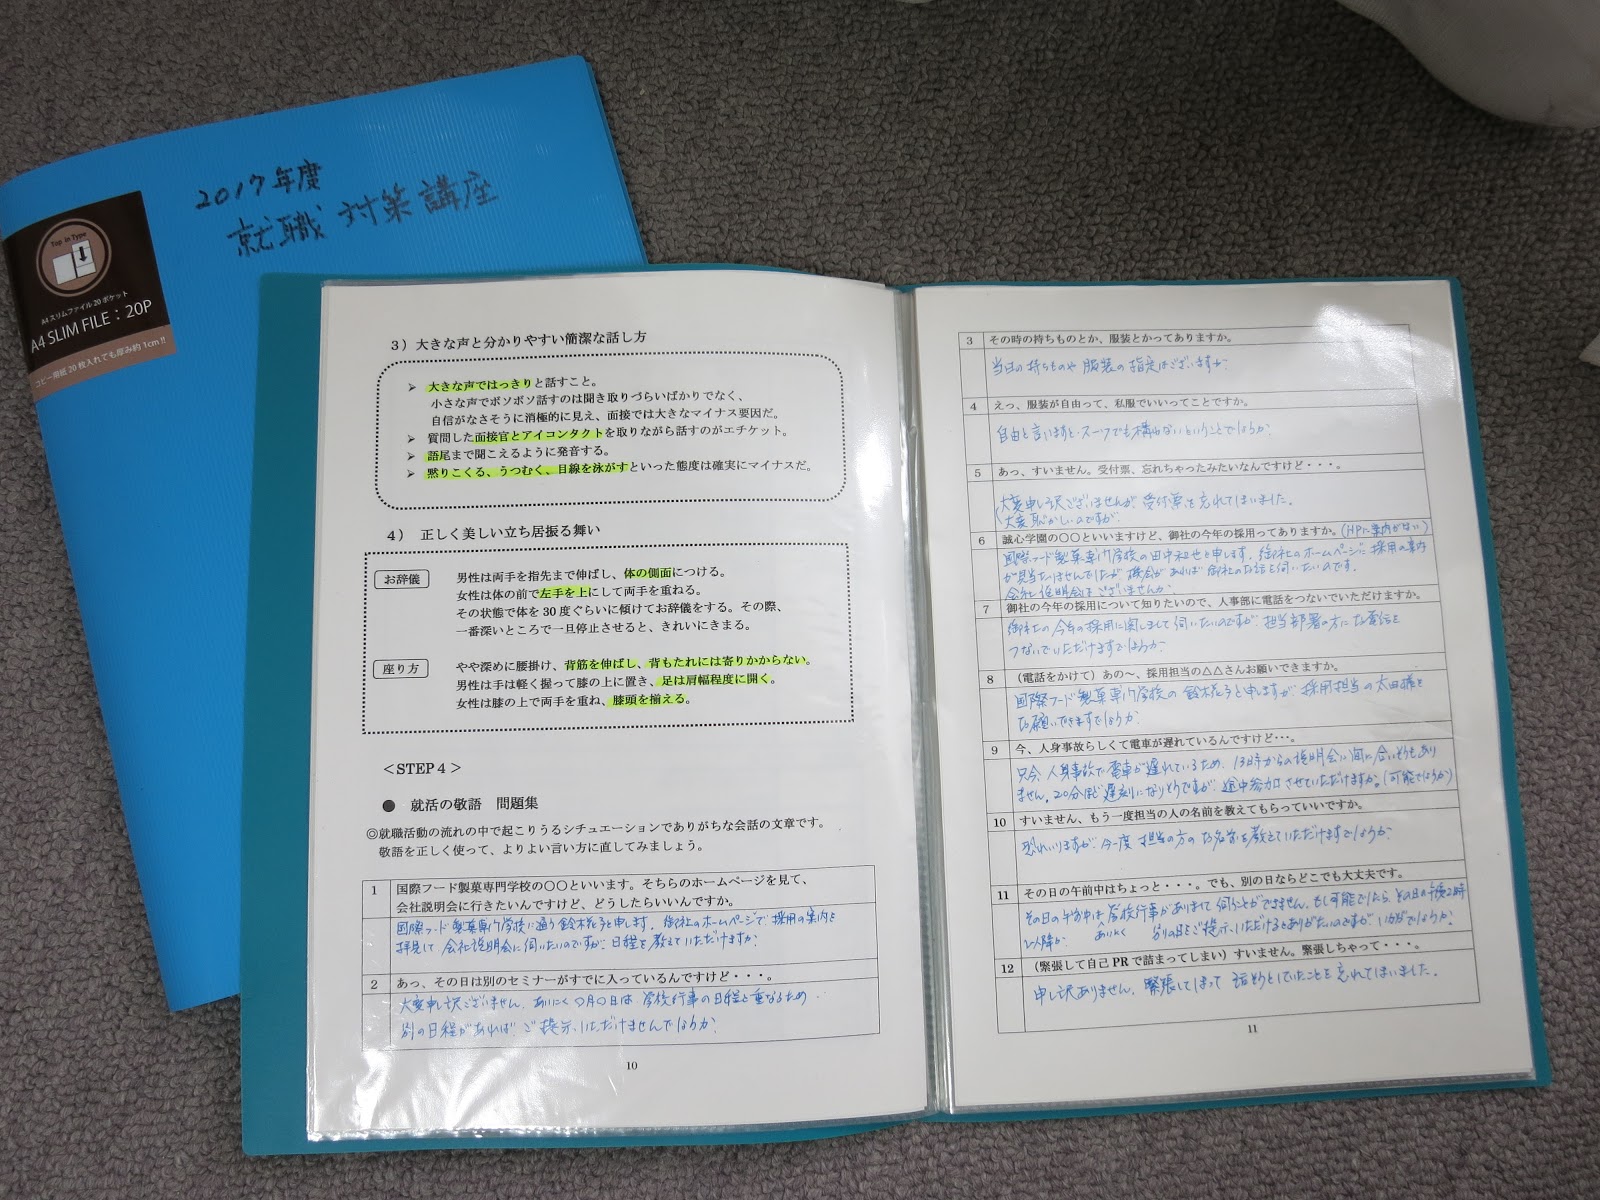 2017年度
就職対策講座
Top in Type
A4スリムファイル20ポケット
A4 SLIM FILE：20P
コピー用紙20枚入れても厚み約1cm!!
3）大きな声と分かりやすい簡潔な話し方
➢ 大きな声ではっきりと話すこと。
小さな声でボソボソ話すのは聞き取りづらいばかりでなく、
自信がなさそうに消極的に見え、面接では大きなマイナス要因だ。
➢ 質問した面接官とアイコンタクトを取りながら話すのがエチケット。
➢ 語尾まで聞こえるように発音する。
➢ 黙りこくる、うつむく、目線を泳がすといった態度は確実にマイナスだ。
4） 正しく美しい立ち居振る舞い
お辞儀 男性は両手を指先まで伸ばし、体の側面につける。
女性は体の前で左手を上にして両手を重ねる。
その状態で体を30度ぐらいに傾けてお辞儀をする。その際、
一番深いところで一旦停止させると、きれいにきまる。
座り方 やや深めに腰掛け、背筋を伸ばし、背もたれには寄りかからない。
男性は手は軽く握って膝の上に置き、足は肩幅程度に開く。
女性は膝の上で両手を重ね、膝頭を揃える。
＜STEP４＞
● 就活の敬語 問題集
◎就職活動の流れの中で起こりうるシチュエーションでありがちな会話の文章です。
敬語を正しく使って、よりよい言い方に直してみましょう。
1 国際フード製菓専門学校の〇〇といいます。そちらのホームページを見て、
会社説明会に行きたいんですけど、どうしたらいいんですか。
国際フード製菓専門学校に通う鈴木花子と申します。御社のホームページで採用の案内を
拝見して会社説明会に伺いたいのですが、日程を教えていただけますか？
2 あっ、その日は別のセミナーがすでに入っているんですけど・・・。
大変申し訳ございません。あいにく〇月〇日は学校行事の日程と重なるため
別の日程があれば、ご提示いただけませんでしょうか？
10
3 その時の持ちものとか、服装とかってありますか。
当日の持ちものや服装の指定はございますか？
4 えっ、服装が自由って、私服でいいってことですか。
自由と言いますと、スーツでも構わないということでしょうか？
5 あっ、すいません。受付票、忘れちゃったみたいなんですけど・・・。
大変申し訳ございませんが、受付票を忘れてしまいました。
大変恥かしいのですが
6 誠心学園の〇〇といいますけど、御社の今年の採用ってありますか。（HPに案内がない）
国際フード製菓専門学校の田中和也と申します。御社のホームページに採用の案内
が見当たりませんでしたが、機会があれば御社のお話を伺いたいのです。
会社説明会はございませんか
7 御社の今年の採用について知りたいので、人事部に電話をつないでいただけますか。
御社の今年の採用に関しまして伺いたいのですが、担当部署の方にお電話を
つないでいただけますでしょうか？
8 （電話をかけて）あの～、採用担当の△△さんお願いできますか。
国際フード製菓専門学校の鈴木花子と申しますが、採用担当の太田様を
お願いできますでしょうか？
9 今、人身事故らしくて電車が遅れているんですけど・・・。
只今、人身事故で電車が遅れているため、13時からの説明会に間に合いそうもあり
ません。20分ほど遅刻になりそうですが、途中参加させていただけますか。（可能でしょうか）
10 すいません、もう一度担当の人の名前を教えてもらっていいですか。
恐れいりますが、今一度担当の方のお名前を教えていただけますでしょうか？
11 その日の午前中はちょっと・・・。でも、別の日ならどこでも大丈夫です。
その日の午前中は学校行事がありまして伺うことができません。もし可能でしたら、その日の午後2時
以降か あいにく 別の日をご提示いただけるとありがたいのですが、いかがでしょうか？
12 （緊張して自己PRで詰まってしまい）すいません。緊張しちゃって・・・。
申し訳ありません。緊張してしまって話そうとしていたことを忘れてしまいました。
11